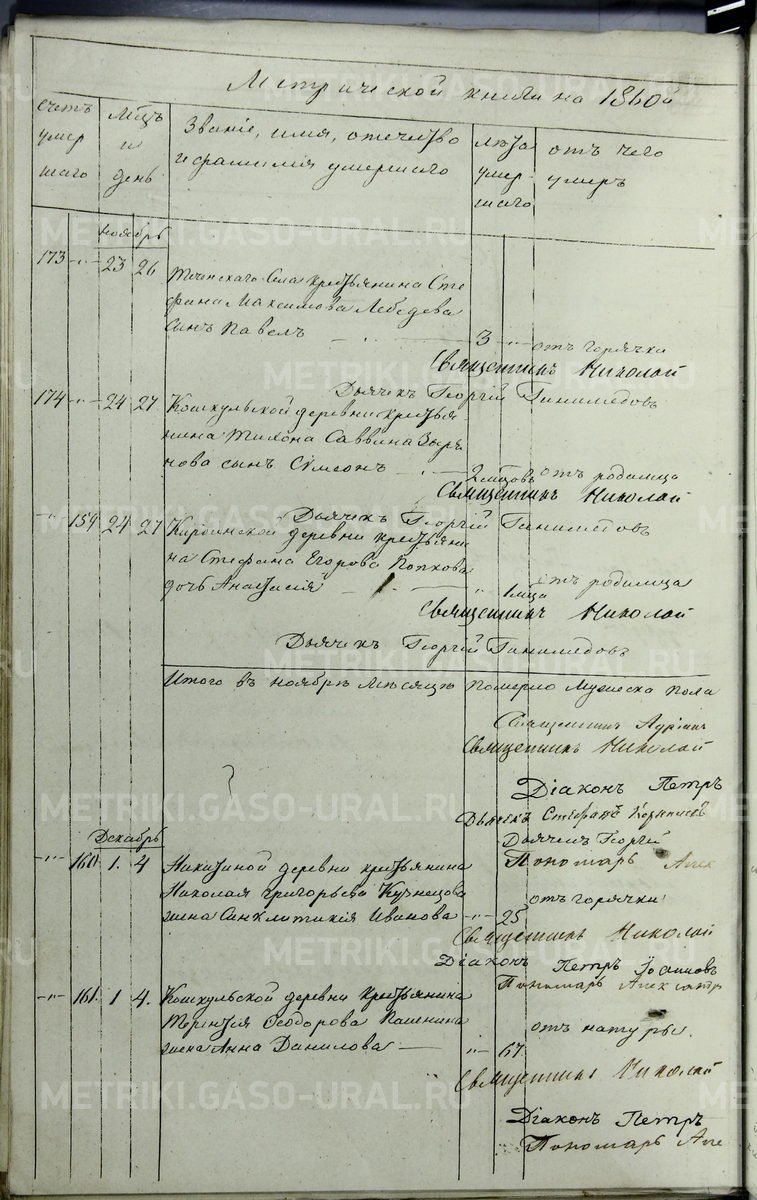 Метрической книги на 1860й
счетъ умер шаго
мѣцъ и день
Званіе, имя, отечество
и фамилія умершаго
лѣта умер шаго
отъ чего
умеръ
ноябрь
173 -"- 23 26
Теченскаго Села крестьянина Сте
фана Максимова Лебедева
сынъ Павелъ 3 отъ горячки
Священникъ Николай
Дьячекъ Георгій Ганимедовъ
174 -"- 24 27 Кошкульской деревни крестья-
нина Тихона Саввина Зыря
нова сынъ Сѵмеонъ 2 мѣцовъ отъ родимца
Священникъ Николай
Дьячекъ Георгій Ганимедовъ
-"- 159 24 27 Кирдинской деревни крестьяни
на Стефана Егорова Попкова
дочь Анастасія 1 мѣца отъ родимца
Священникъ Николай
Дьячекъ Георгій Ганимедовъ
Итого въ ноябрѣ мѣсяцѣ померло мужеска пола
Священникъ Адріанъ
Священникъ Николай
Діаконъ Петръ
Дьячекъ Стефанъ
Дьячекъ Георгій
Пономарь Алек
Декабрь
-"- 160 1. 4 Никитиной деревни крестьянина
Николая Григорьева Кузнецова
жена Синклитикія Иванова -"- 25 отъ горячки
Священникъ Николай
Діаконъ Петръ
Пономарь Александръ
-"- 161. 1 4. Кошкульской деревни крестьянина
Терентія Ѳеодорова
жена Анна Данилова -"- 67 отъ натуры.
Священникъ Николай
Діаконъ Петръ
Пономарь Але
METRIKI.GASO-URAL.RU